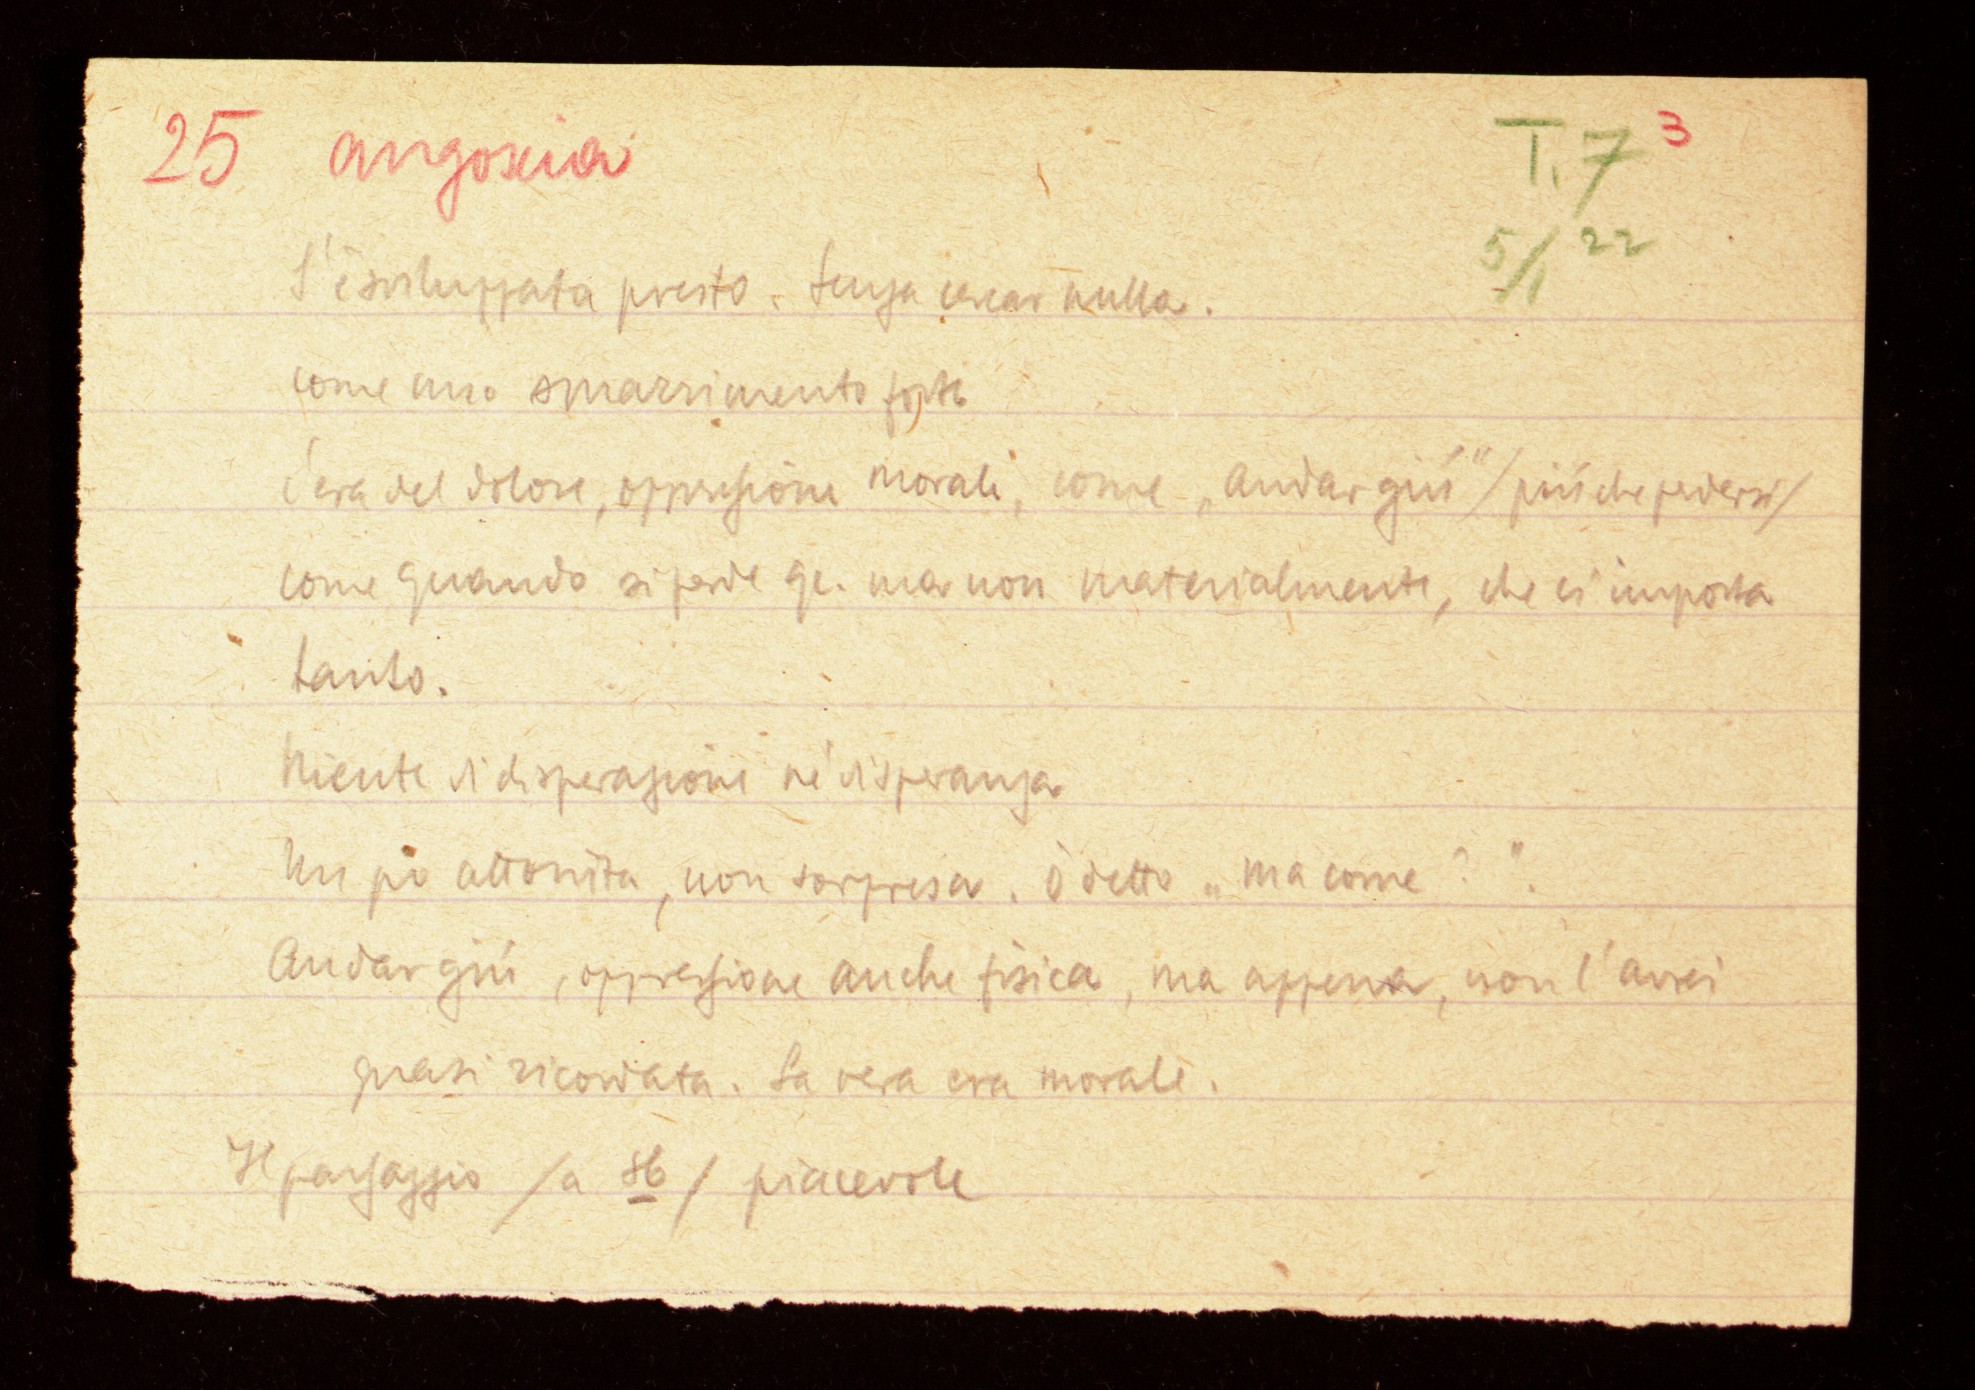 25 angoscia T.7 3
5/1 22
S'è sviluppata presto. Senza cercar nulla.
come uno smarrimento forte
C'era del dolore, oppressione morale, come „andar giù" /più che perdersi/
come quando si perde qc. ma non materialmente, che ci importa
tanto.
Niente di disperazione né di speranza
Un po attonita, non sorpresa. Ò detto „ma come?".
Andar giù, oppressione anche fisica, ma appena, non l'avrei
quasi ricordata. La vera era morale.
Il passaggio /a / piacevole